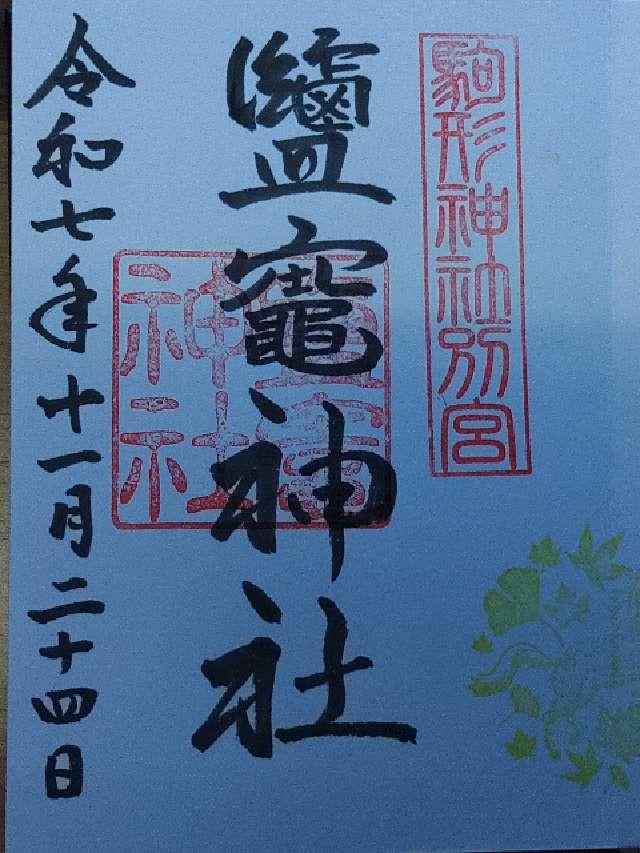 駒形神社別宮
鹽竈神社
令和七年十一月二十四日